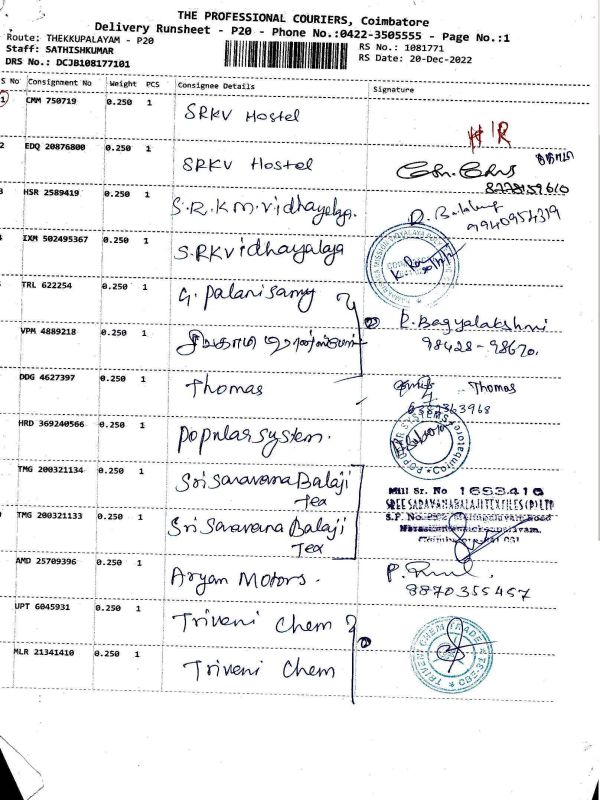 THE PROFESSIONAL COURIERS, Coimbatore
Delivery Runsheet - P20 - Phone No.:0422-3505555 - Page No.:1
Route: THEKKUPALAYAM - P20
Staff: SATHISHKUMAR
DRS No.: DCJB108177101
RS No.: 1081771
RS Date: 20-Dec-2022
S No Consignment No Weight PCS Consignee Details Signature
1 CMM 750719 0.250 1 SRKV Hostel
2 EDQ 20876800 0.250 1 SRKV Hostel
HSR 2589419 0.250 1 S.R.K.M.Vidhayalaya.
9940954319
IXM 502495367 0.250 1 S.RKVidhayalaya
TRL 622254 0.250 1 G. Palanisamy
VPM 4889218 0.250 1
R. Bagyalakshmi
98428-98670.
DDG 4627397 0.250 1 Thomas Thomas
HRD 369240566 0.250 1 Popular system.
TMG 200321134 0.250 1 Sri Saravana Balaji
Tex
Mill Sr. No 1653410
SREE SARAVANABALAJI TEXTILES (P) LTD
TMG 200321133 0.250 1 Sri Saravana Balaji
Tex
AMD 25709396 0.250 1 Aryan Motors.
8870355457
UPT 6045931 0.250 1 Triveni Chem
TRIVENI CHEM TRADE
MLR 21341410 0.250 1 Triveni Chem